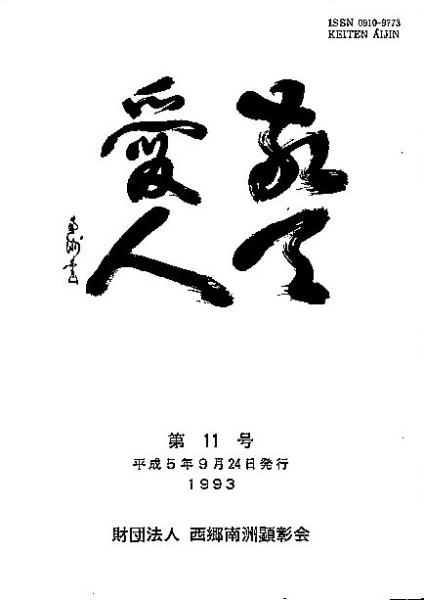 ISSN 0910-9773
KEITEN AIJIN
敬天
愛人
南洲書
第 11 号
平成5年9月24日発行
1993
財団法人 西郷南洲顕彰会